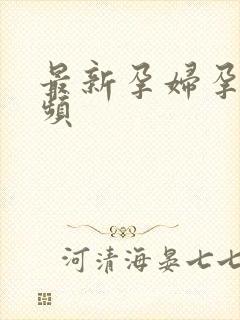 最新孕婦孕
頻
河清海晏七七